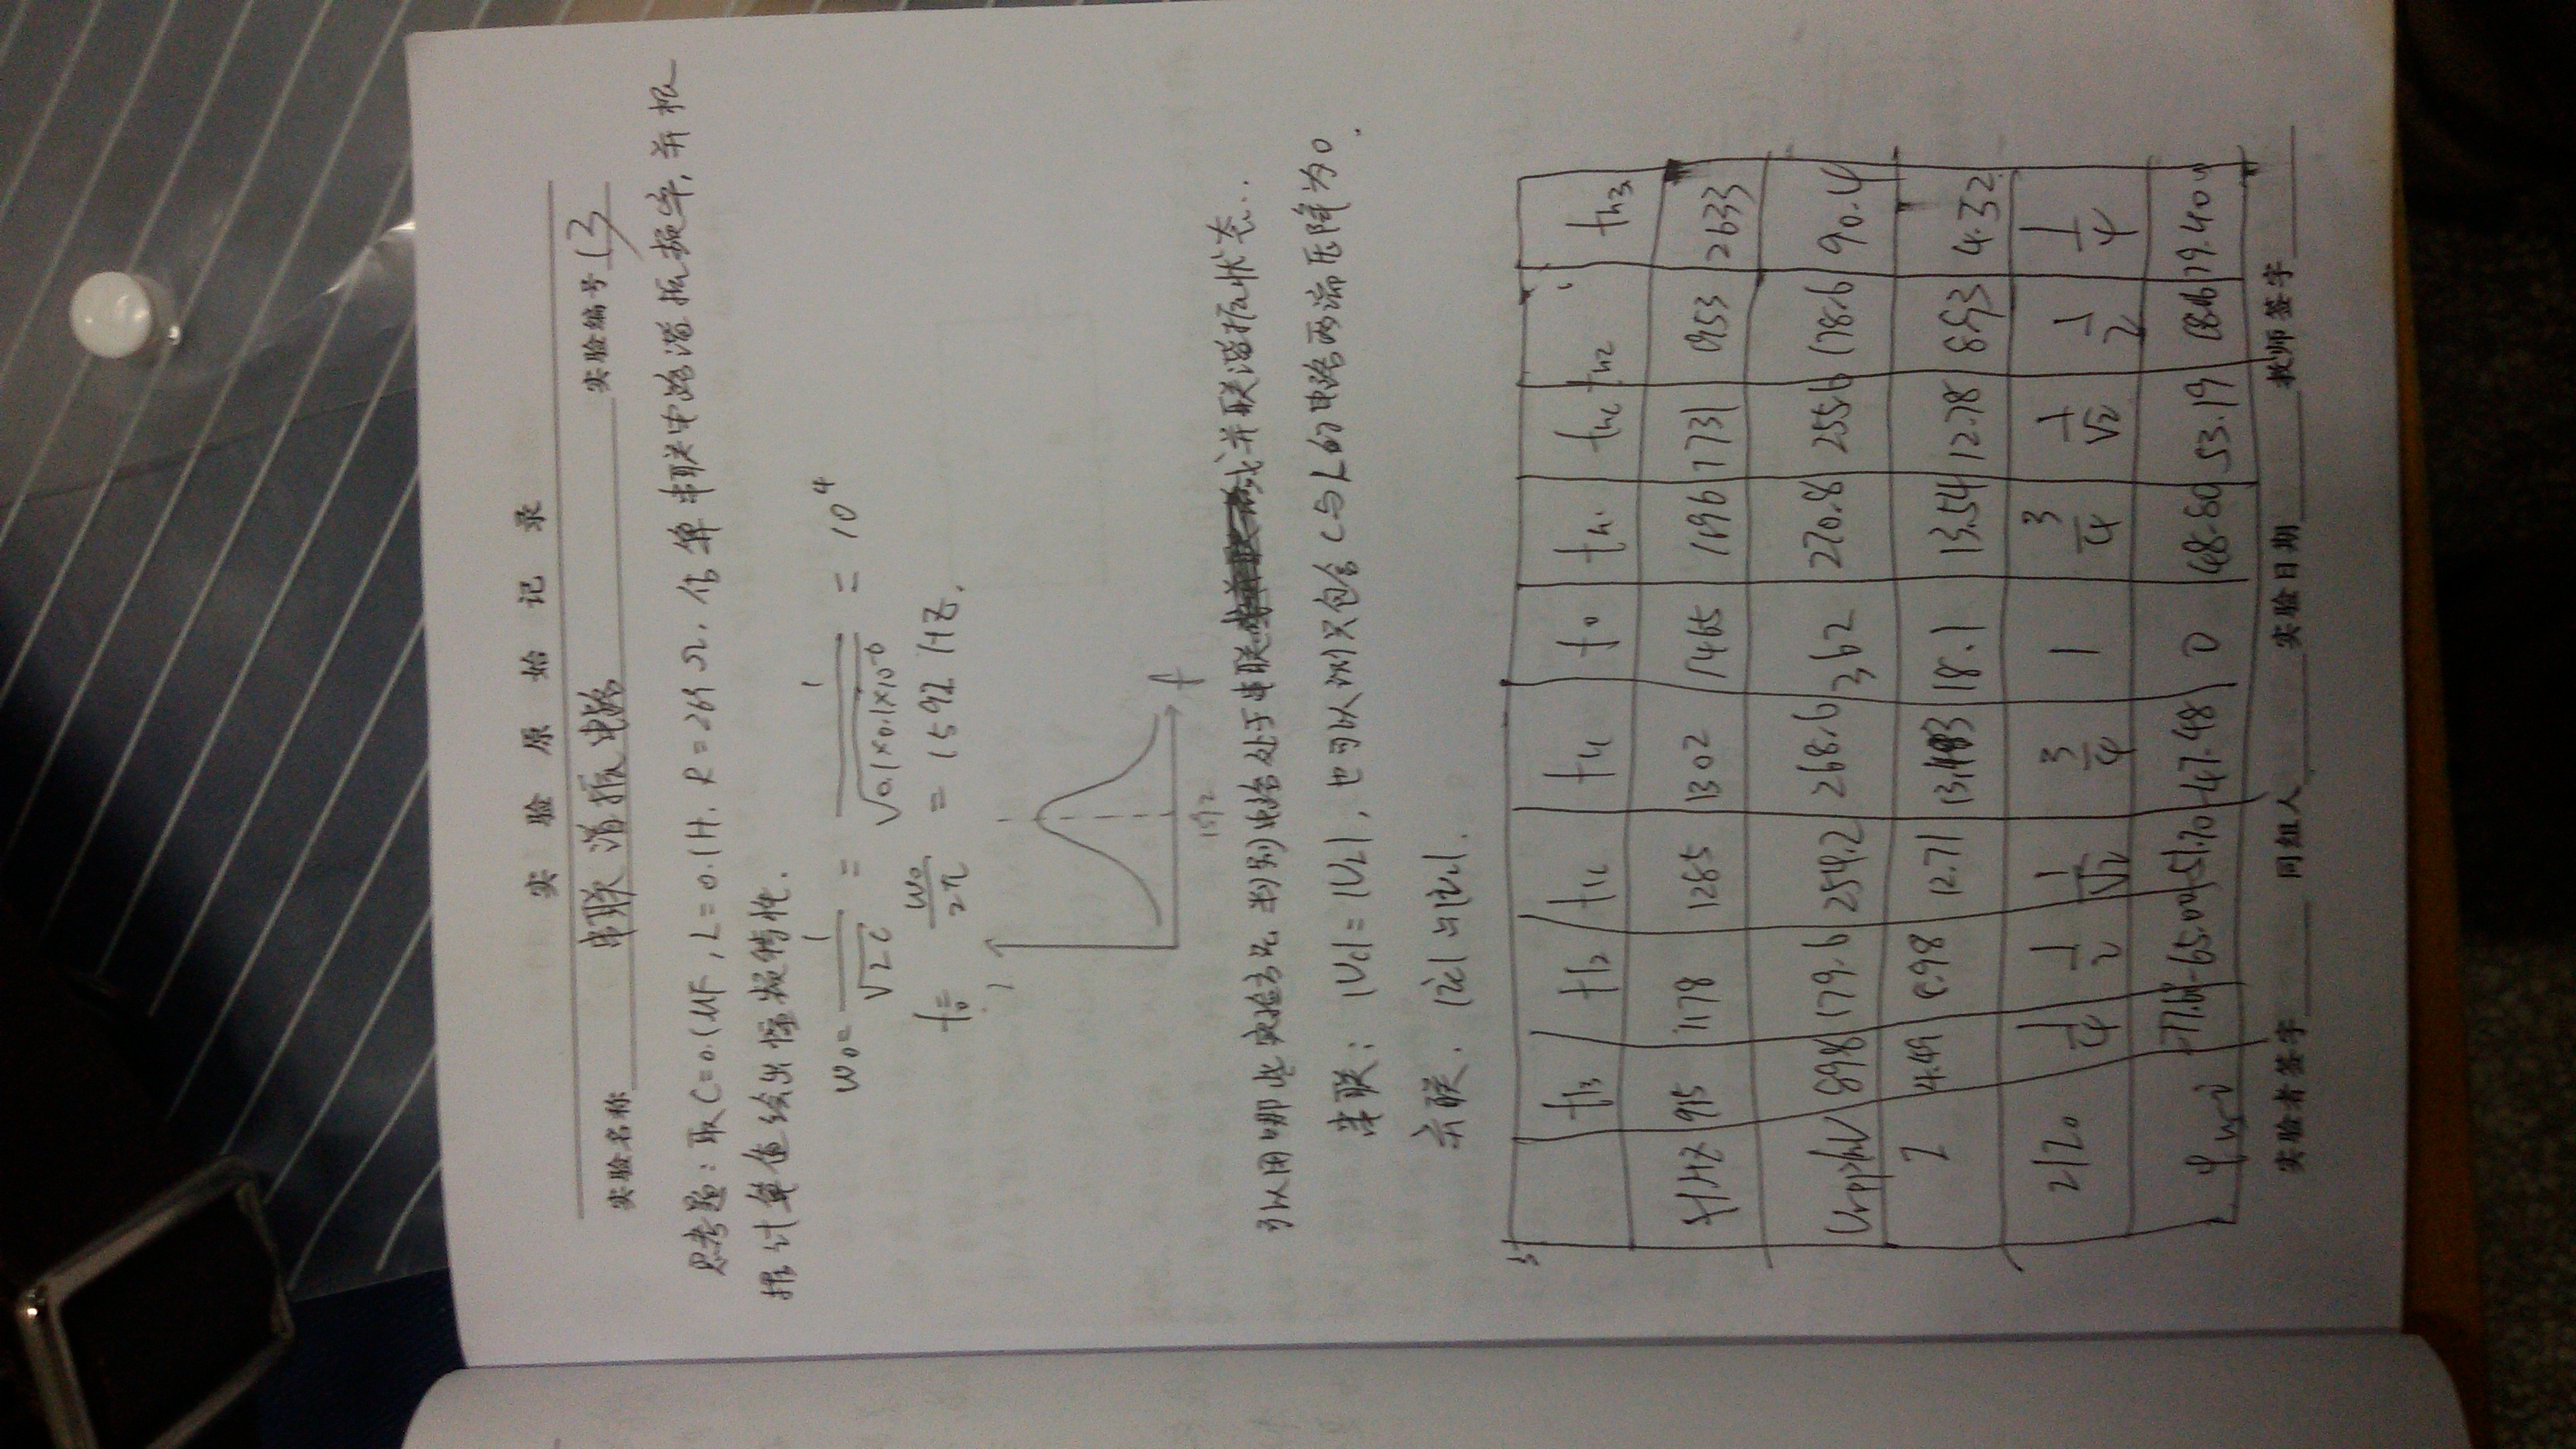 实验原始记录
实验名称 串联谐振电路 实验编号 13
思考题: 取C=0.1μF, L=0.1H, R=269Ω, 估算串联电路谐振频率, 并根
据计算值绘出幅频特性.
ω0= 1/√LC = 1/√0.1×0.1×10^-6 = 10^4
f0= ω0/2π = 1592 HZ.
I
f
1592
可以用哪些实验方法判别电路处于串联或并联谐振状态..
串联: |Uc|=|UL|, 也可以测只包含C与L的电路两端压降为0.
并联.
fl3 fl2 flc fl1 f0 fh1 fhc fh2 fh3
f/HZ 915 1178 1285 1302 1465 1696 1731 1953 2633
89.8 179.6 254.2 268.6 362 270.8 255.6 178.6 90.4
I 4.49 8.98 12.71 18.1 13.54 12.78 8.93
I/I0 1/4 1/2 1/√2 3/4 1 3/4 1/√2 1/2 1/4
-65.00 -51.70 -47.48 0 48.80 53.19 79.40
实验者签字 同组人 实验日期 教师签字